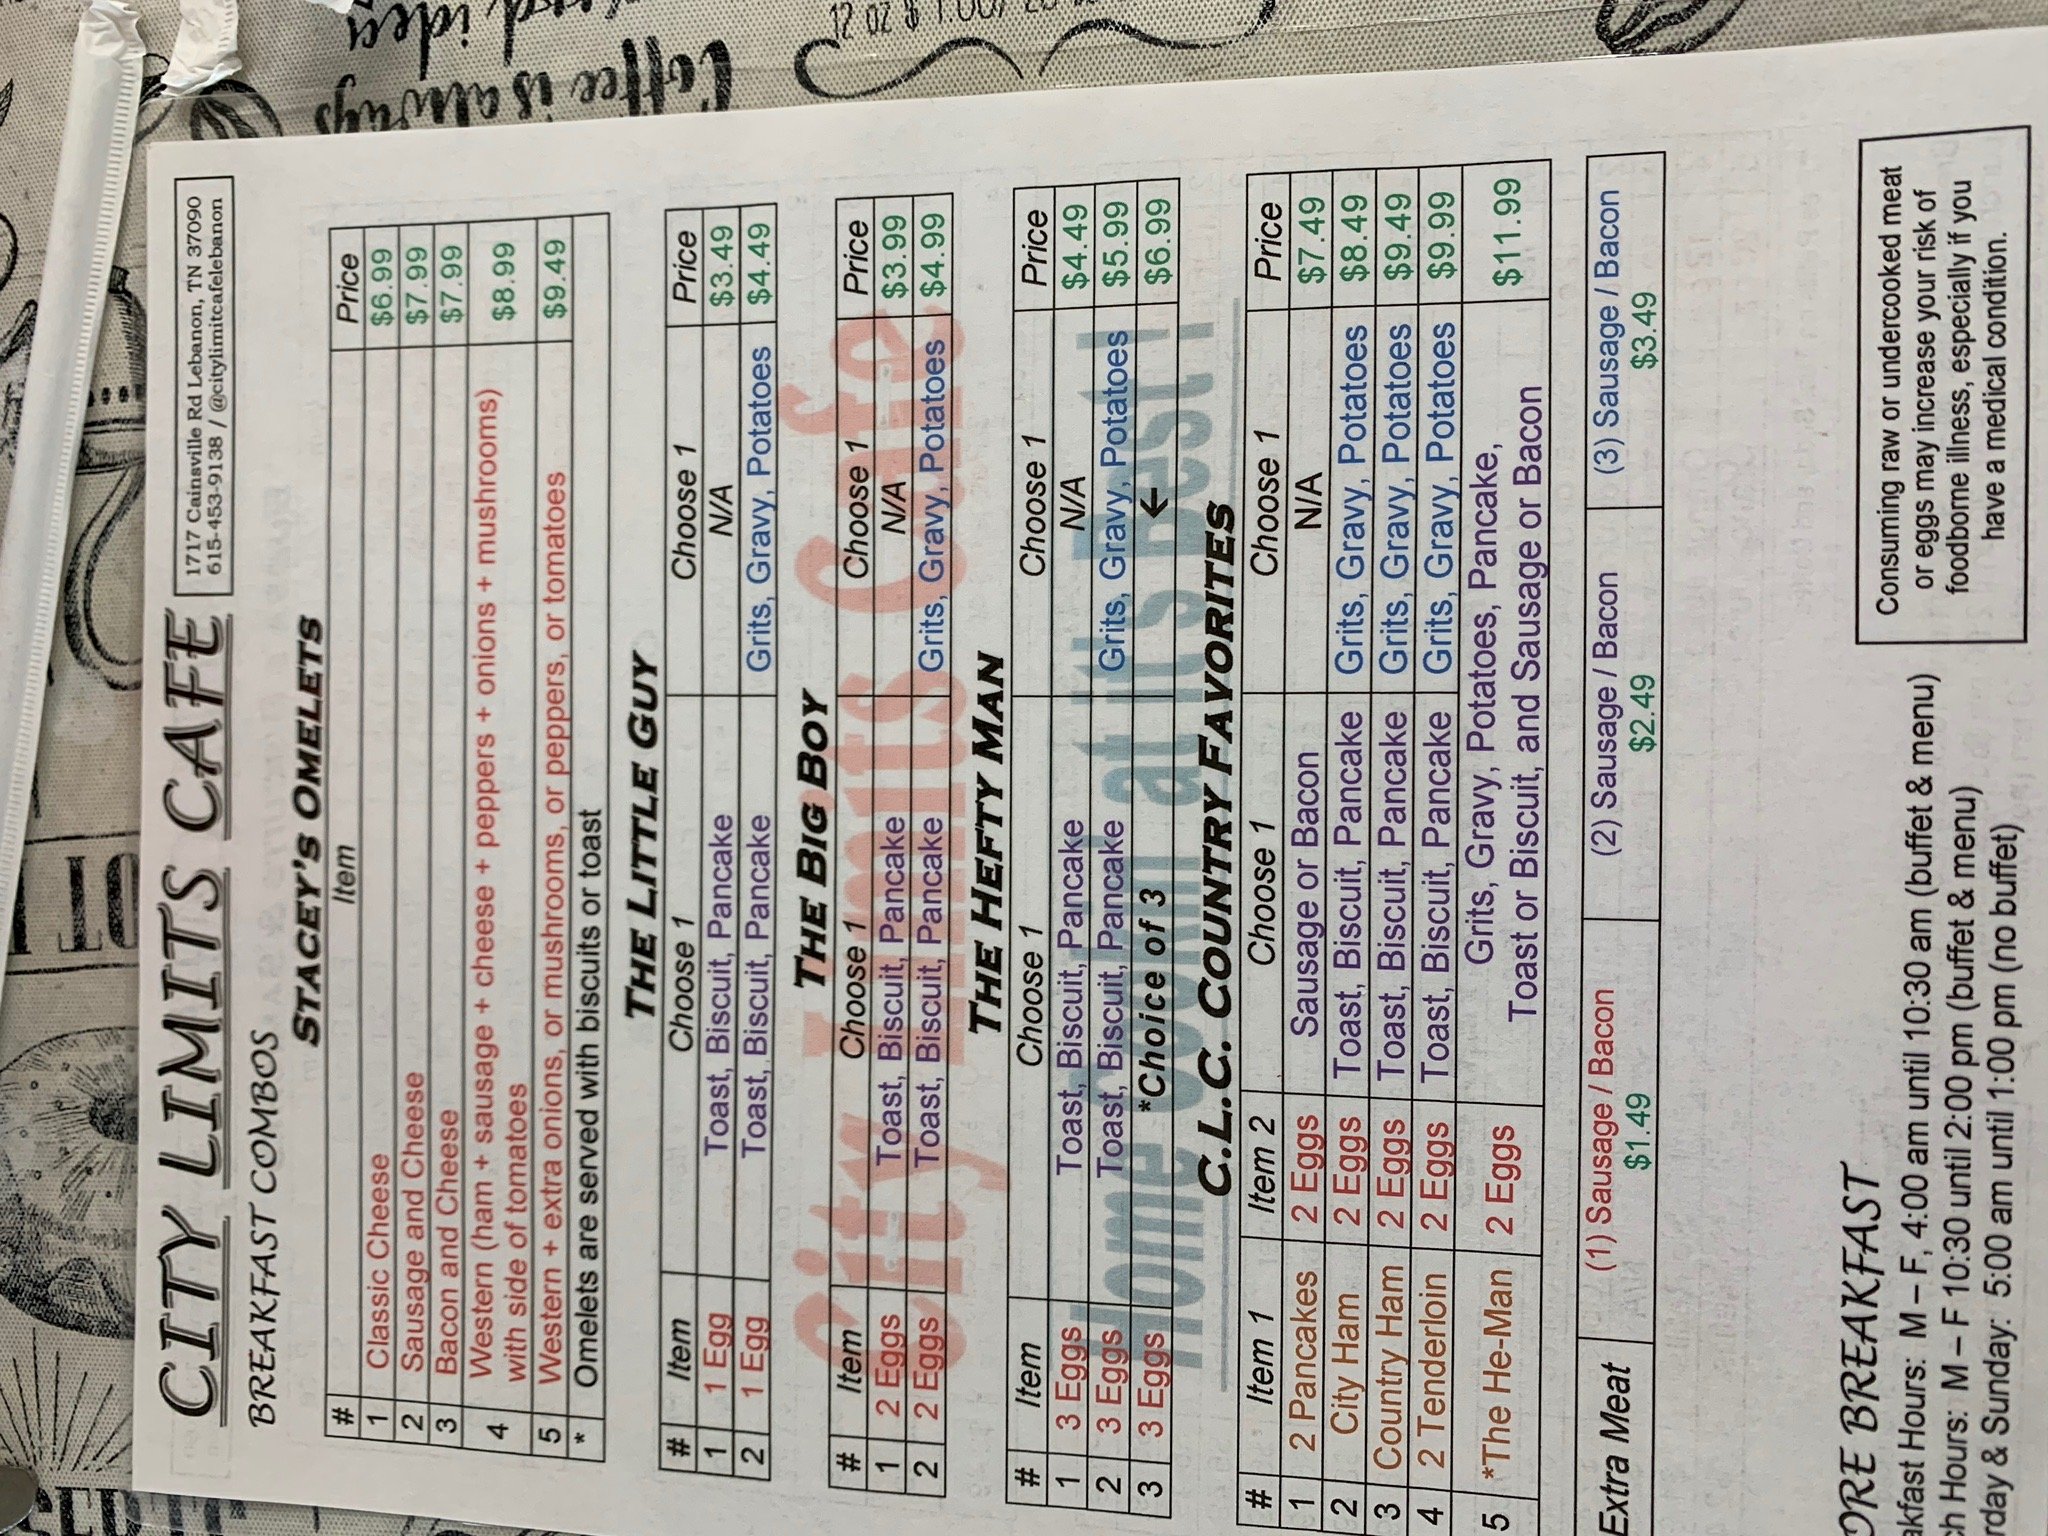 CITY LIMITS CAFE
1717 Cainsville Rd Lebanon, TN 37090
615-453-9138 / @citylimitcafelebanon
BREAKFAST COMBOS
STACEY'S OMELETS
# Item Price
1 Classic Cheese $6.99
2 Sausage and Cheese $7.99
3 Bacon and Cheese $7.99
4 Western (ham + sausage + cheese + peppers + onions + mushrooms) $8.99
with side of tomatoes
5 Western + extra onions, or mushrooms, or peppers, or tomatoes $9.49
* Omelets are served with biscuits or toast
THE LITTLE GUY
# Item Choose 1 Choose 1 Price
1 1 Egg Toast, Biscuit, Pancake N/A $3.49
2 1 Egg Toast, Biscuit, Pancake Grits, Gravy, Potatoes $4.49
THE BIG BOY
# Item Choose 1 Choose 1 Price
1 2 Eggs Toast, Biscuit, Pancake N/A $3.99
2 2 Eggs Toast, Biscuit, Pancake Grits, Gravy, Potatoes $4.99
City Limits Cafe
THE HEFTY MAN
# Item Choose 1 Choose 1 Price
1 3 Eggs Toast, Biscuit, Pancake N/A $4.49
2 3 Eggs Toast, Biscuit, Pancake Grits, Gravy, Potatoes $5.99
3 3 Eggs *Choice of 3 ← $6.99
Home cookin at it's best!
C.L.C. COUNTRY FAVORITES
# Item 1 Item 2 Choose 1 Choose 1 Price
1 2 Pancakes 2 Eggs Sausage or Bacon N/A $7.49
2 City Ham 2 Eggs Toast, Biscuit, Pancake Grits, Gravy, Potatoes $8.49
3 Country Ham 2 Eggs Toast, Biscuit, Pancake Grits, Gravy, Potatoes $9.49
4 2 Tenderloin 2 Eggs Toast, Biscuit, Pancake Grits, Gravy, Potatoes $9.99
5 *The He-Man 2 Eggs Grits, Gravy, Potatoes, Pancake, $11.99
Toast or Biscuit, and Sausage or Bacon
Extra Meat (1) Sausage / Bacon (2) Sausage / Bacon (3) Sausage / Bacon
$1.49 $2.49 $3.49
ORE BREAKFAST
kfast Hours: M – F, 4:00 am until 10:30 am (buffet & menu)
h Hours: M – F 10:30 until 2:00 pm (buffet & menu)
day & Sunday: 5:00 am until 1:00 pm (no buffet)
Consuming raw or undercooked meat
or eggs may increase your risk of
foodborne illness, especially if you
have a medical condition.
Coffee is always
idea
12 oz $1.00